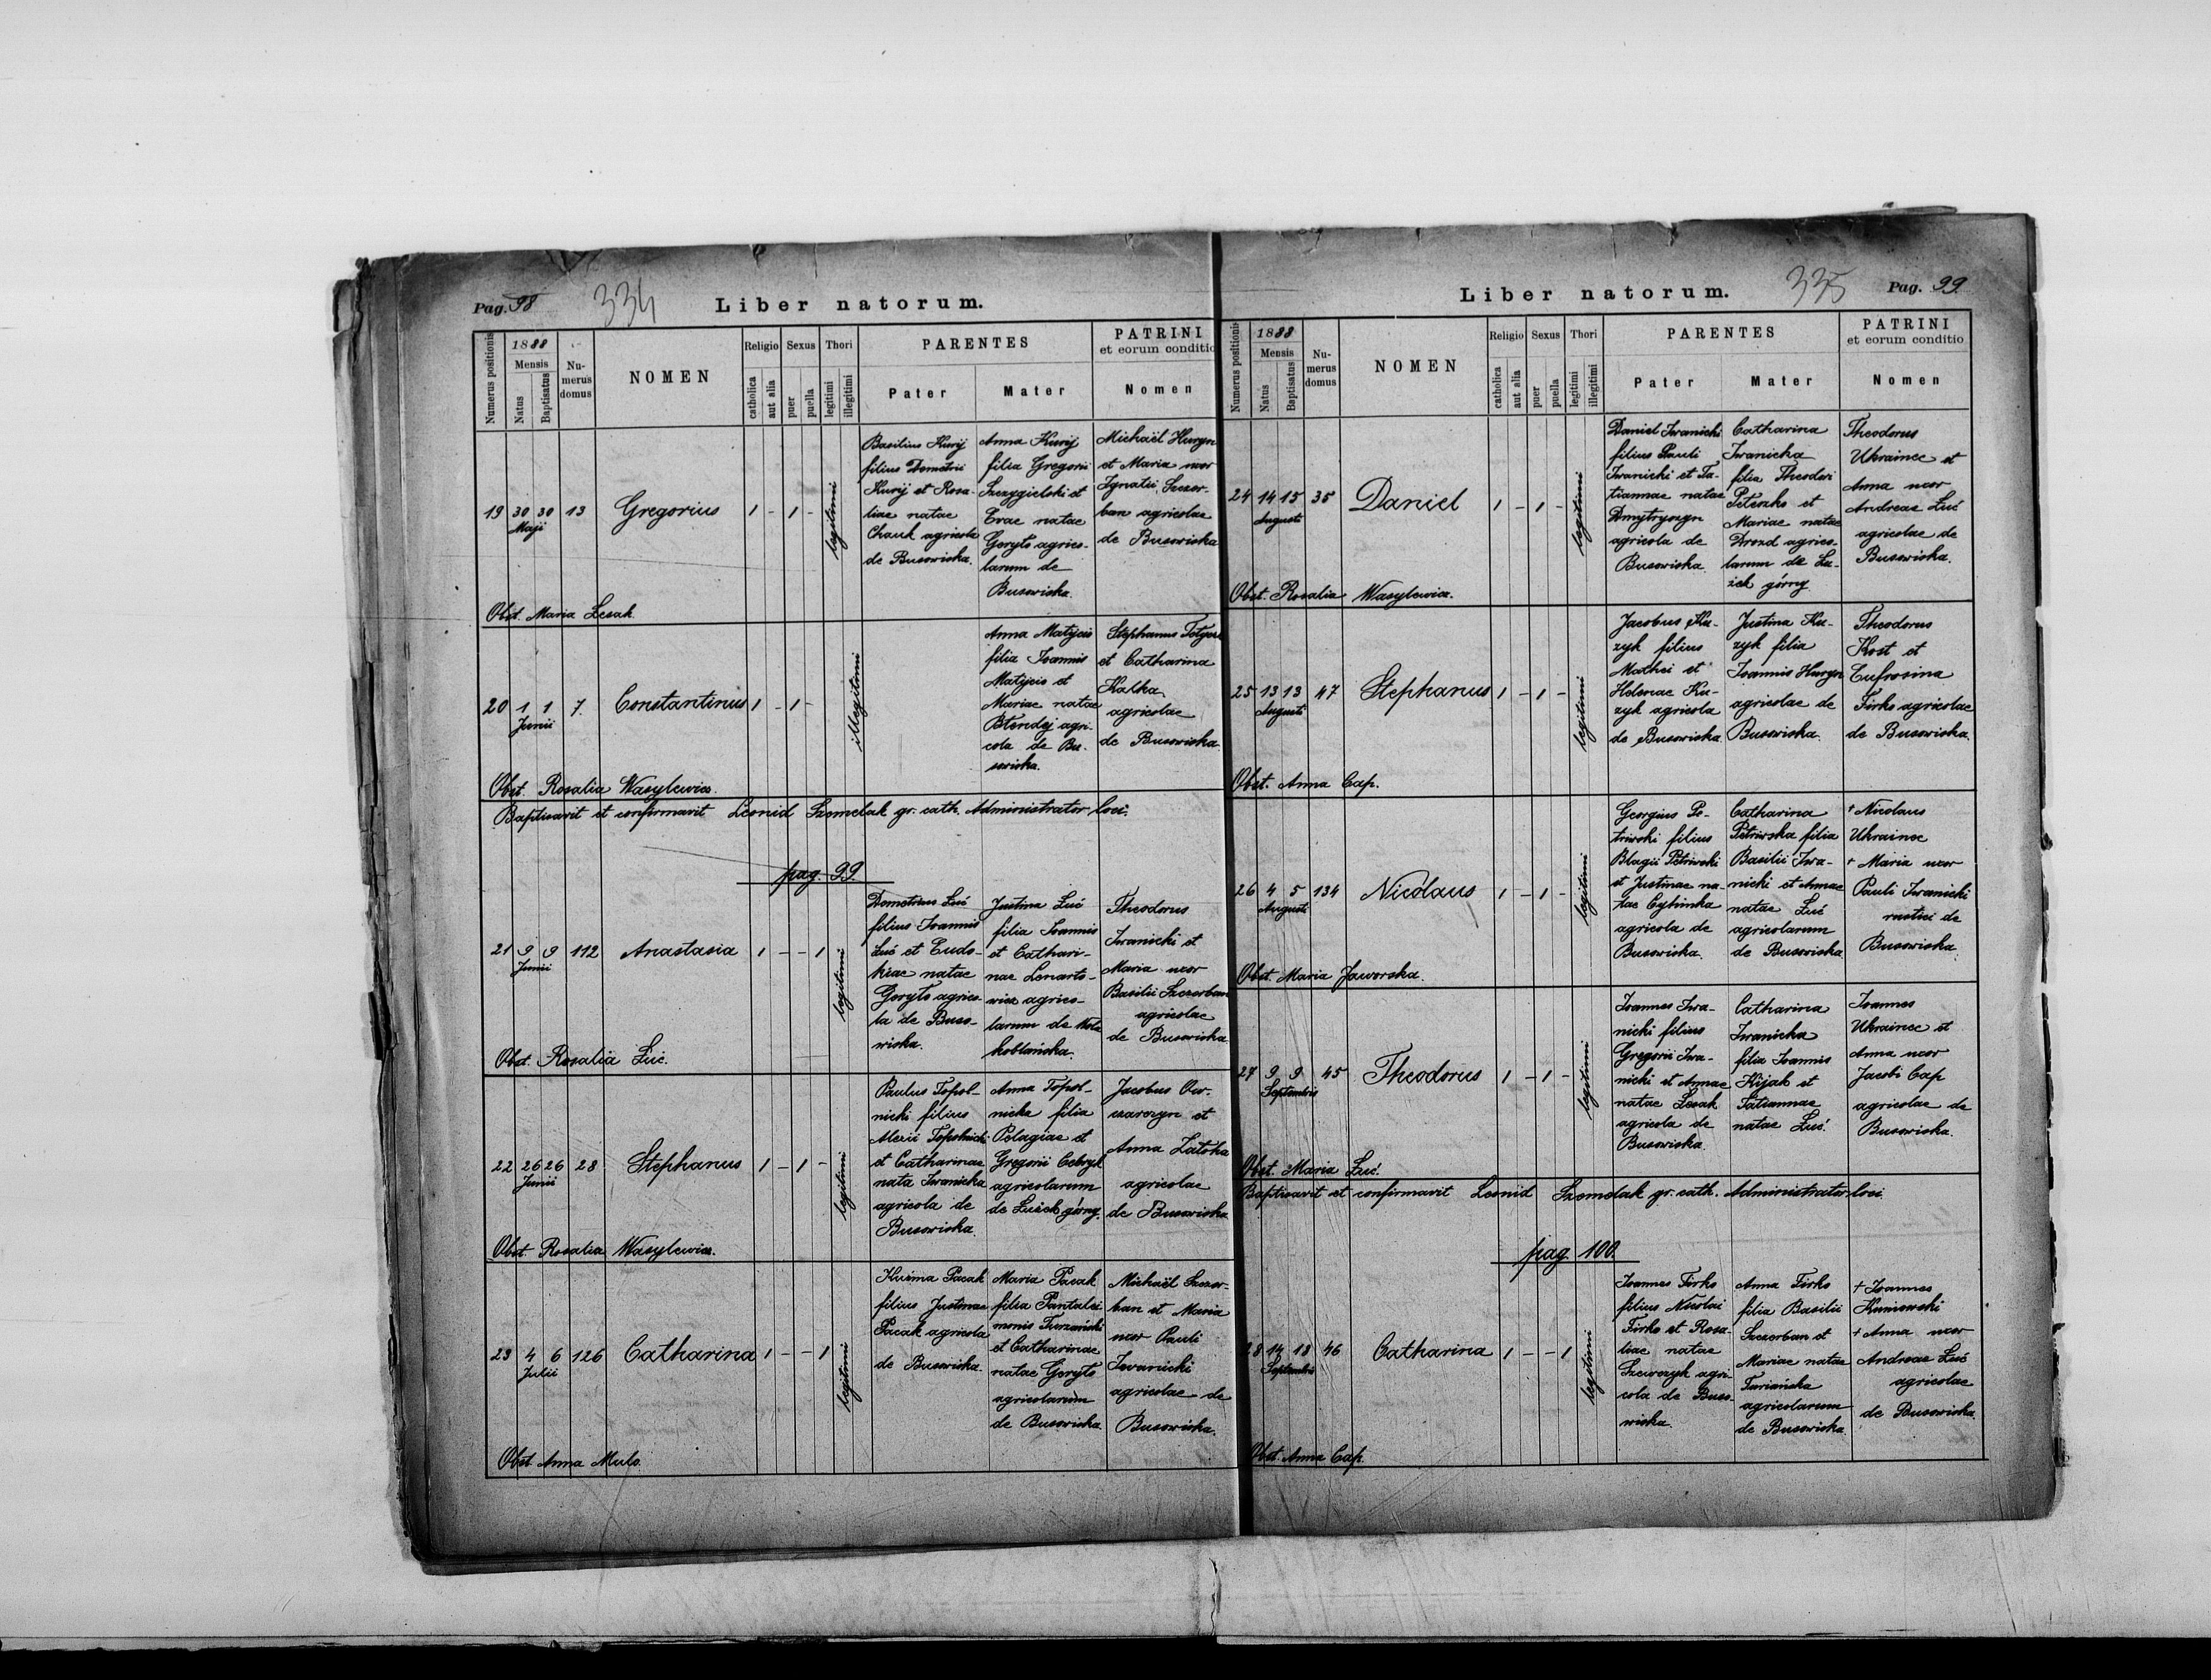 Pag. 98
334
Liber natorum.
Numerus positionis
1888
Mensis
Natus
Baptisatus
Nu-
merus
domus
NOMEN
Religio
catholica
aut alia
Sexus
puer
puella
Thori
legitimi
illegitimi
PARENTES
Pater
Mater
PATRINI
et eorum conditio
Nomen
19 30 30 13 Gregorius 1 - 1 - legitimi
Maji
Basilius Kurij
filius Demetrii
Kurij et Rosa-
liae natae
Chauk agricola
de Busowiska.
Anna Kurij
filia Gregorii
Szczygielski et
Evae natae
Goryto agrico-
larum de
Busowiska.
Michaël Huryn
et Maria uxor
Ignatii Szczer-
ban agricolae
de Busowiska
Obst. Maria Lesak.
20 1 1 7. Constantinus 1 - 1 - illegitimi
Junii
Anna Matijcio
filia Joannis
Matijcio et
Mariae natae
agri-
cola de Bu-
sowiska.
Stephanus
et Catharina
Kalka
agricolae
de Busowiska.
Obst. Rosalia Wasylewicz.
Baptisavit et confirmavit Leonid Szomelak gr. cath. Administrator loci.
pag. 99.
21 9 9 112 Anastasia 1 - - 1 legitimi
Junii
Demetrius Luć
filius Joannis
Luć et Eudo-
kiae natae
Goryto agrico-
la de Buso-
wiska.
Justina Luć
filia Joannis
et Cathari-
nae Lenarto-
wicz agrico-
larum de Wola
koblańska.
Theodorus
Iwanicki et
Maria uxor
Basilii Szczerban
agricolae
de Busowiska
Obst. Rosalia Luć.
22 26 26 28 Stephanus 1 - 1 - legitimi
Junii
Paulus Topol-
nicki filius
Alexii Topolnicki
et Catharinae
nata Iwanicka
agricola de
Busowiska.
Anna Topol-
nicka filia
Pelagiae et
Gregorii Cebryk
agricolarum
de Łużek górny.
Jacobus Ow-
czarczyn et
Anna Zatoka
agricolae
de Busowiska
Obst. Rosalia Wasylewicz.
23 4 6 126 Catharina 1 - - 1 legitimi
Julii
Kuźma Pacak
filius Justinae
Pacak agricola
de Busowiska.
Maria Pacak
filia Pantalei-
monis Turzański
et Catharinae
natae Goryto
agricolarum
de Busowiska.
Michaël Szczer-
ban et Maria
uxor Pauli
Iwanicki
agricolae de
Busowiska.
Obst. Anna Mulo.
Liber natorum.
335
Pag. 99.
Numerus positionis
1888
Mensis
Natus
Baptisatus
Nu-
merus
domus
NOMEN
Religio
catholica
aut alia
Sexus
puer
puella
Thori
legitimi
illegitimi
PARENTES
Pater
Mater
PATRINI
et eorum conditio
Nomen
24 14 15 35 Daniel 1 - 1 - legitimi
Augusti
Daniel Iwanicki
filius Pauli
Iwanicki et Ta-
tiannae natae
Dmytryszyn
agricola de
Busowiska.
Catharina
Iwanicka
filia Theodori
Peteczko et
Mariae natae
Drozd agrico-
larum de Łu-
żek górny.
Theodorus
Ukrainec et
Anna uxor
Andreae Luć
agricolae de
Busowiska.
Obst. Rosalia Wasylewicz.
25 13 13 47 Stephanus 1 - 1 - legitimi
Augusti
Jacobus Ku-
zyk filius
Mathei et
Helenae Ku-
zyk agricola
de Busowiska.
Justina Ku-
zyk filia
Joannis Huryn
agricolae de
Busowiska.
Theodorus
Kost et
Eufrosina
Firko agricolae
de Busowiska.
Obst. Anna Cap.
26 4 5 134 Nicolaus 1 - 1 - legitimi
Augusti
Georgius Pe-
triwski filius
Blagii Petriwski
et Justinae na-
tae Cytrinka
agricola de
Busowiska.
Catharina
Petriwska filia
Basilii Iwa-
nicki et Annae
natae Luć
agricolarum
de Busowiska
† Nicolaus
Ukrainec
† Maria uxor
Pauli Iwanicki
rustici de
Busowiska.
Obst. Maria Jaworska.
27 9 9 45 Theodorus 1 - 1 - legitimi
Septembris
Joannes Iwa-
nicki filius
Gregorii Iwa-
nicki et Annae
natae Lesak
agricola de
Busowiska.
Catharina
Iwanicka
filia Joannis
Kijak et
Tatiannae
natae Luć.
Joannes
Ukrainec et
Anna uxor
Jacobi Cap
agricolae de
Busowiska.
Obst. Maria Luć.
Baptisavit et confirmavit Leonid Szomelak gr. cath. Administrator loci.
pag. 100.
28 14 18 46 Catharina 1 - - 1 legitimi
Septembris
Joannes Firko
filius Nicolai
Firko et Rosa-
liae natae
Szewczyk agri-
cola de Buso-
wiska.
Anna Firko
filia Basilii
Szczerban et
Mariae natae
Turiańska
agricolarum
de Busowiska.
† Joannes
Kuniowski
† Anna uxor
Andreae Luć
agricolae
de Busowiska.
Obst. Anna Cap.